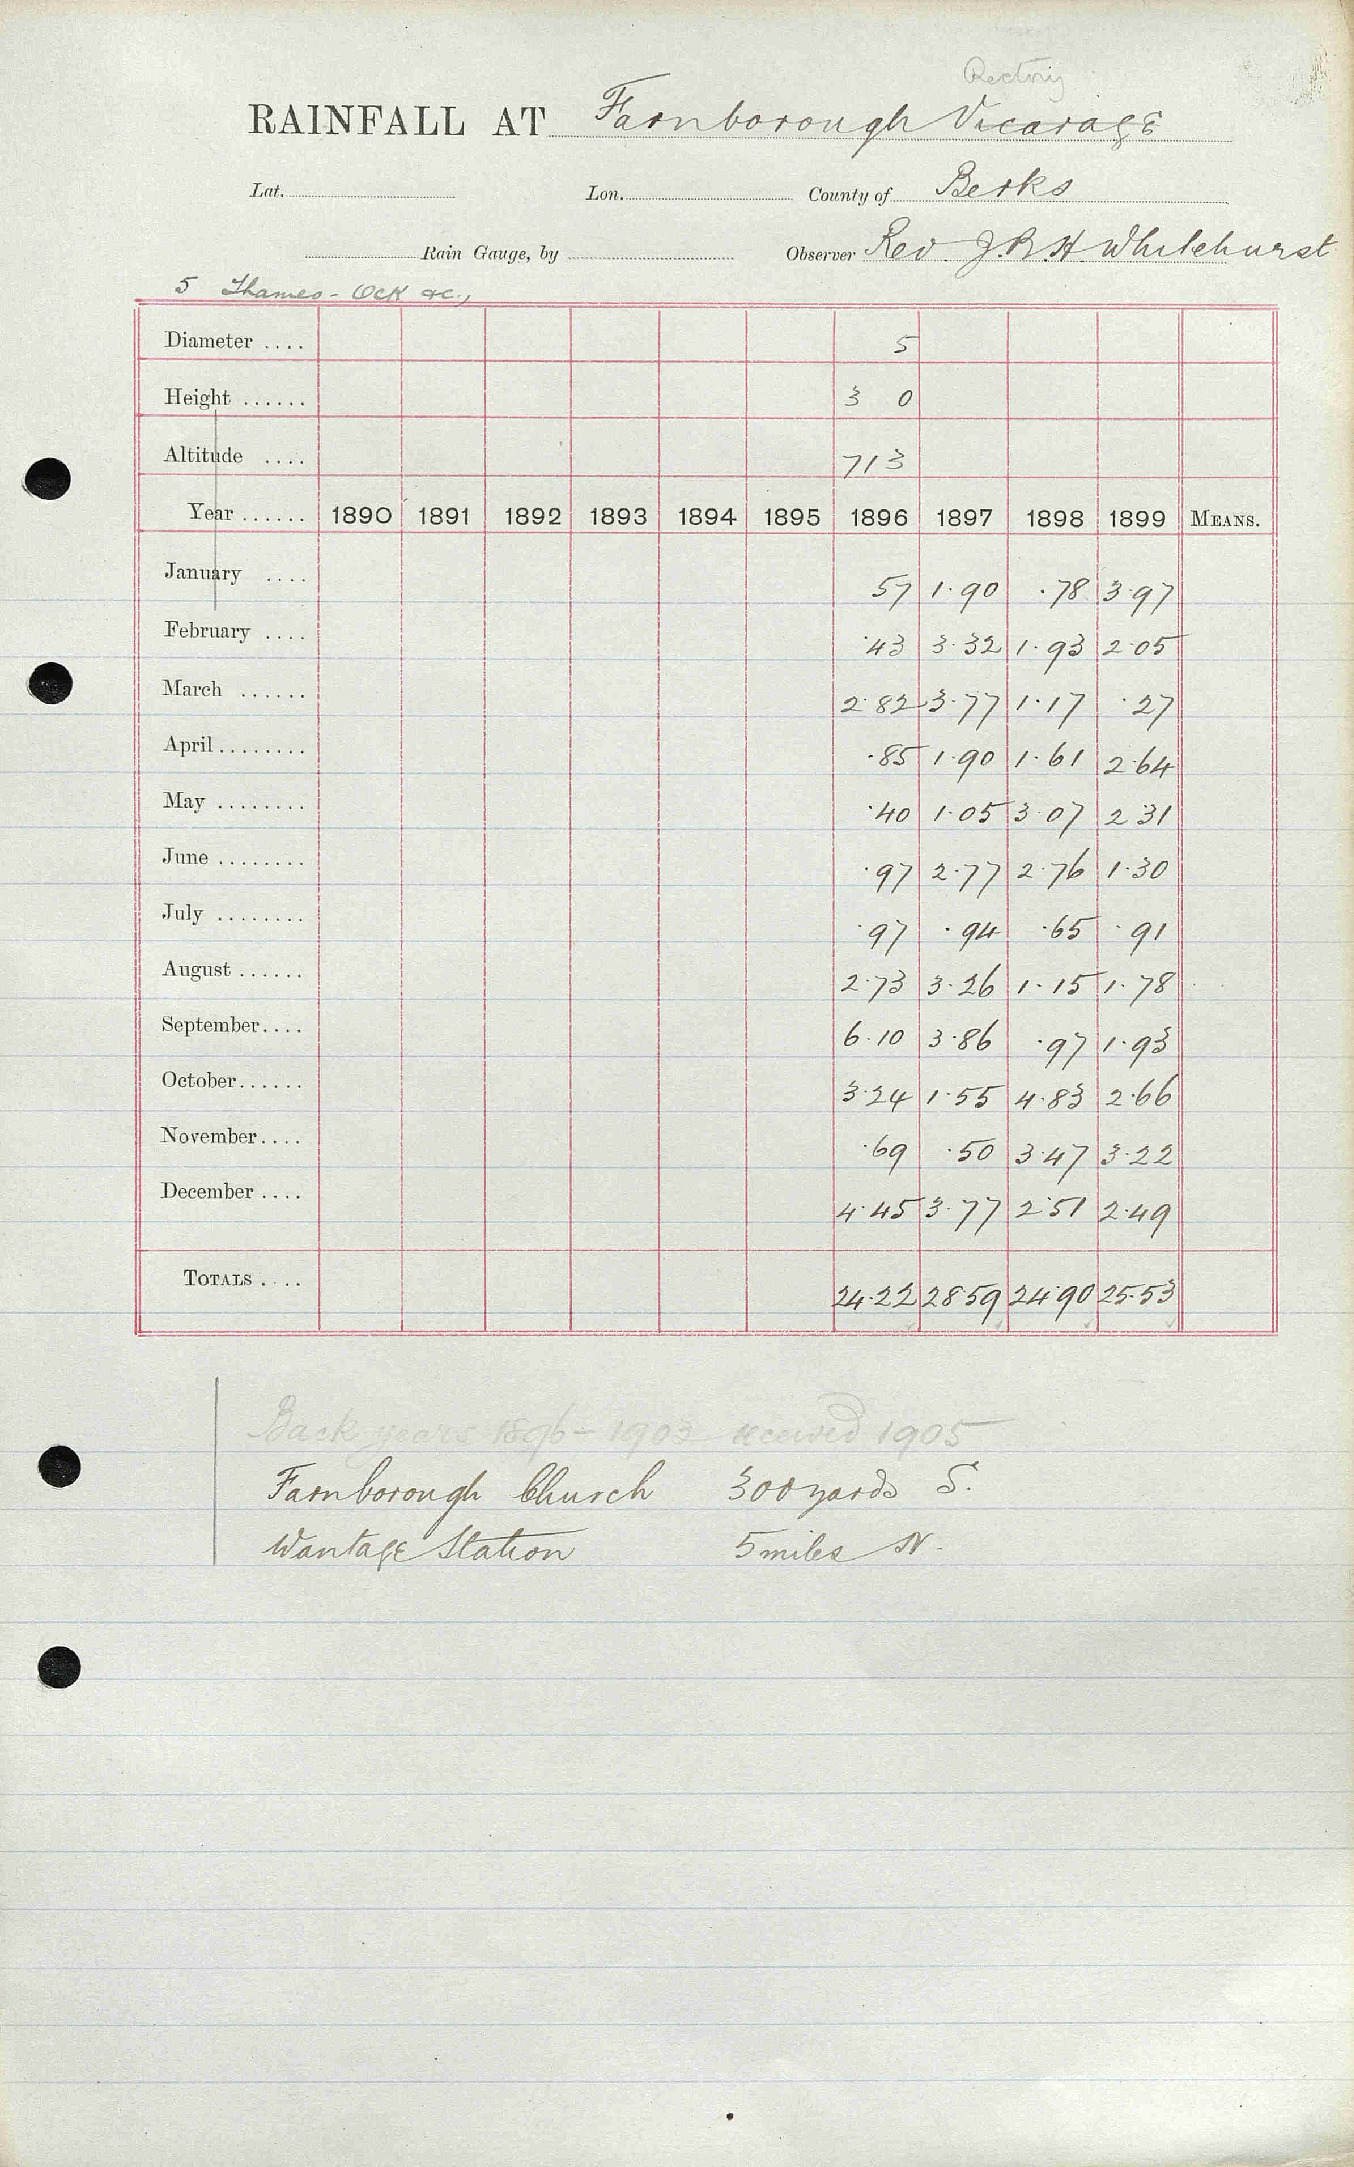 Rectory
RAINFALL AT Farnborough Vicarage
Lat. Lon. County of Berks
Rain Gauge, by Observer Rev J.R.H Whitehurst
5 Thames - Ock &c.,
Diameter .... 5
Height ...... 3 0
Altitude .... 713
Year ...... 1890 1891 1892 1893 1894 1895 1896 1897 1898 1899 MEANS.
January .... 57 1.90 .78 3.97
February .... .43 3.32 1.93 2.05
March ...... 2.82 3.77 1.17 .27
April ........ .85 1.90 1.61 2.64
May ........ .40 1.05 3.07 2 31
June ........ .97 2.77 2.76 1.30
July ........ .97 .94 .65 .91
August ...... 2.73 3.26 1.15 1.78
September .... 6.10 3.86 .97 1.93
October ...... 3.24 1.55 4.83 2.66
November .... .69 .50 3.47 3.22
December .... 4.45 3.77 2.51 2.49
TOTALS .... 24.22 28.59 24.90 25.53
Back years 1896 - 1903 received 1905
Farnborough Church 300 yards S.
Wantage Station 5 miles N.